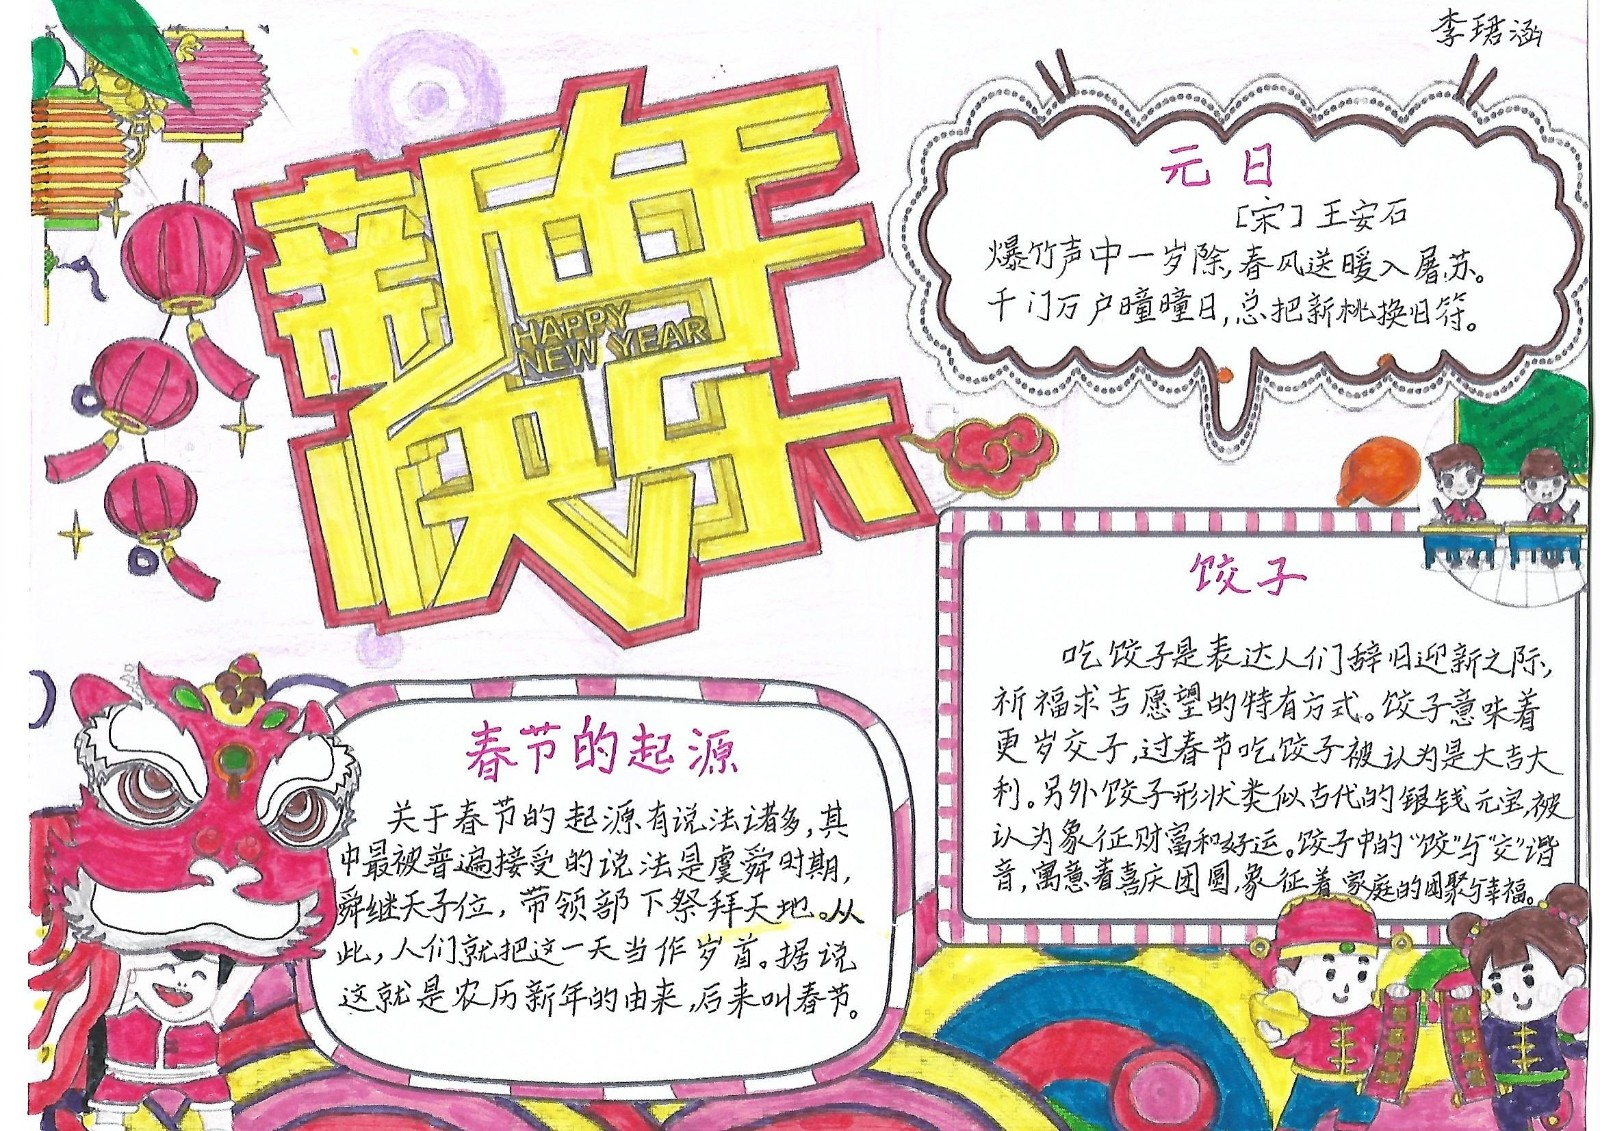 李珺涵
新年
快乐
HAPPY
NEW YEAR
元日
[宋]王安石
爆竹声中一岁除,春风送暖入屠苏。
千门万户曈曈日,总把新桃换旧符。
饺子
吃饺子是表达人们辞旧迎新之际,
祈福求吉愿望的特有方式。饺子意味着
更岁交子,过春节吃饺子被认为是大吉大
利。另外饺子形状类似古代的银钱元宝,被
认为象征财富和好运。饺子中的“饺”与“交”谐
音,寓意着喜庆团圆,象征着家庭的团聚与幸福。
春节的起源
关于春节的起源有说法诸多,其
中最被普遍接受的说法是虞舜时期,
舜继天子位,带领部下祭拜天地。从
此,人们就把这一天当作岁首。据说
这就是农历新年的由来,后来叫春节。